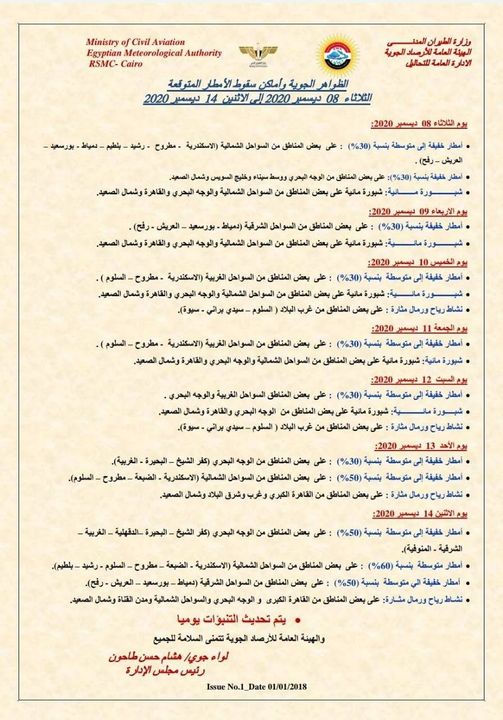 Ministry of Civil Aviation
Egyptian Meteorological Authority
RSMC- Cairo
وزارة الطيران المدنـــــــى
الهيئة العامة للأرصاد الجوية
الادارة العامة للتحاليل
الظواهر الجوية وأماكن سقوط الأمطار المتوقعة
الثلاثاء 08 ديسمبر 2020 إلى الاثنين 14 ديسمبر 2020
يوم الثلاثاء 08 ديسمبر 2020:
• أمطار خفيفة إلى متوسطة بنسبة (30%) : على بعض المناطق من السواحل الشمالية (الاسكندرية - مطروح - رشيد – بلطيم – دمياط - بورسعيد –
العريش – رفح) .
• أمطار خفيفة بنسبة (30%): على بعض المناطق من الوجه البحري ووسط سيناء وخليج السويس وشمال الصعيد.
• شبــــــورة مــــائية: شبورة مائية على بعض المناطق من السواحل الشمالية والوجه البحري والقاهرة وشمال الصعيد.
يوم الاربعاء 09 ديسمبر 2020:
• أمطار خفيفة بنسبة (30%) : على بعض المناطق من السواحل الشرقية (دمياط – بورسعيد – العريش - رفح) .
• شبــــــورة مائـــــية: شبورة مائية على بعض المناطق من السواحل الشمالية والوجه البحري والقاهرة وشمال الصعيد.
يوم الخميس 10 ديسمبر 2020:
• أمطار خفيفة إلى متوسطة بنسبة (30%) : على بعض المناطق من السواحل الغربية (الاسكندرية - مطروح – السلوم ) .
• شبــــورة مائـــــية: شبورة مائية على بعض المناطق من السواحل الشمالية والوجه البحري والقاهرة وشمال الصعيد.
• نشاط رياح ورمال مثارة: على بعض المناطق من غرب البلاد ( السلوم – سيدي براني - سيوة).
يوم الجمعة 11 ديسمبر 2020:
• أمطار خفيفة إلى متوسطة بنسبة (30%) : على بعض المناطق من السواحل الغربية (الاسكندرية - مطروح – السلوم ) .
• شبورة مائية: شبورة مائية على بعض المناطق من السواحل الشمالية والوجه البحري والقاهرة وشمال الصعيد.
يوم السبت 12 ديسمبر 2020:
• أمطار خفيفة إلى متوسطة بنسبة (30%) : على بعض المناطق من السواحل الغربية والوجه البحري .
• شبــــورة مائـــــية: شبورة مائية على بعض المناطق من الوجه البحري والقاهرة وشمال الصعيد.
• نشاط رياح ورمال مثارة: على بعض المناطق من غرب البلاد ( السلوم – سيدي براني - سيوة).
يوم الأحد 13 ديسمبر 2020:
• أمطار خفيفة إلى متوسطة بنسبة (30%) : على بعض المناطق من الوجه البحري (كفر الشيخ – البحيرة - الغربية).
• أمطار خفيفة إلى متوسطة بنسبة (50%) : على بعض المناطق من السواحل الشمالية (الاسكندرية - الضبعة – مطروح – السلوم).
• نشاط رياح ورمال مثارة : على بعض المناطق من القاهرة الكبري وغرب وشرق البلاد وشمال الصعيد.
يوم الاثنين 14 ديسمبر 2020:
• أمطار خفيفة إلى متوسطة بنسبة (50%) : على بعض المناطق من الوجه البحري (كفر الشيخ – البحيرة –الدقهلية – الغربية –
الشرقية - المنوفية).
• أمطار خفيفة إلى متوسطة بنسبة (60%) : على بعض المناطق من السواحل الشمالية (الاسكندرية - الضبعة – مطروح – السلوم - رشيد – بلطيم).
• أمطار خفيفة الي متوسطة بنسبة (50%) : على بعض المناطق من السواحل الشرقية (دمياط – بورسعيد – العريش - رفح).
• نشاط رياح ورمال مثــارة: على بعض المناطق من القاهرة الكبرى و الوجه البحري والسواحل الشمالية ومدن القناة وشمال الصعيد.
• يتم تحديث التنبؤات يوميا
والهيئة العامة للأرصاد الجوية تتمنى السلامة للجميع
لواء جوي/ هشام حسن طاحون
رئيس مجلس الإدارة
Issue No.1_Date 01/01/2018